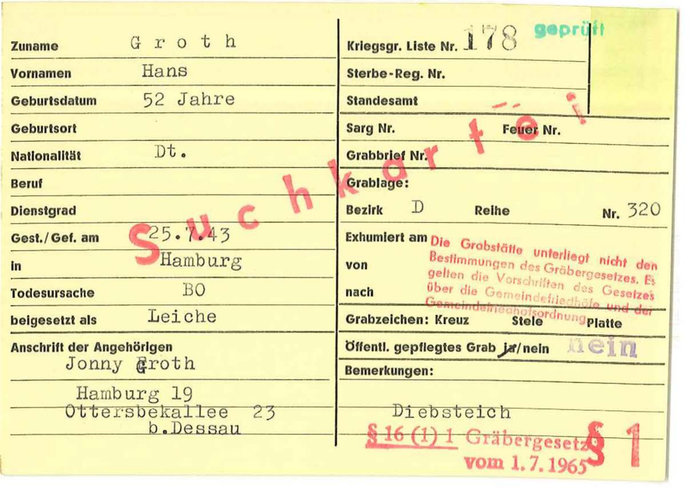 Zuname G r o t h
Vornamen Hans
Geburtsdatum 52 Jahre
Geburtsort
Nationalität Dt.
Beruf
Dienstgrad
Gest./Gef. am 25.7.43
in Hamburg
Todesursache BO
beigesetzt als Leiche
Anschrift der Angehörigen
Jonny Groth
Hamburg 19
Ottersbekallee 23
b.Dessau
Suchkartei
geprüft
Kriegsgr. Liste Nr. 178
Sterbe-Reg. Nr.
Standesamt
Sarg Nr. Feuer Nr.
Grabbrief Nr.
Grablage:
Bezirk D Reihe Nr. 320
Exhumiert am
von
nach
Die Grabstätte unterliegt nicht den
Bestimmungen des Gräbergesetzes. Es
gelten die Vorschriften des Gesetzes
über die Gemeindefriedhöfe und der
Gemeindefriedhofsordnung
Grabzeichen: Kreuz Stele Platte
Öffentl. gepflegtes Grab ja/nein nein
Bemerkungen:
Diebsteich
§ 16 (1) 1 Gräbergesetz
vom 1.7.1965
§ 1